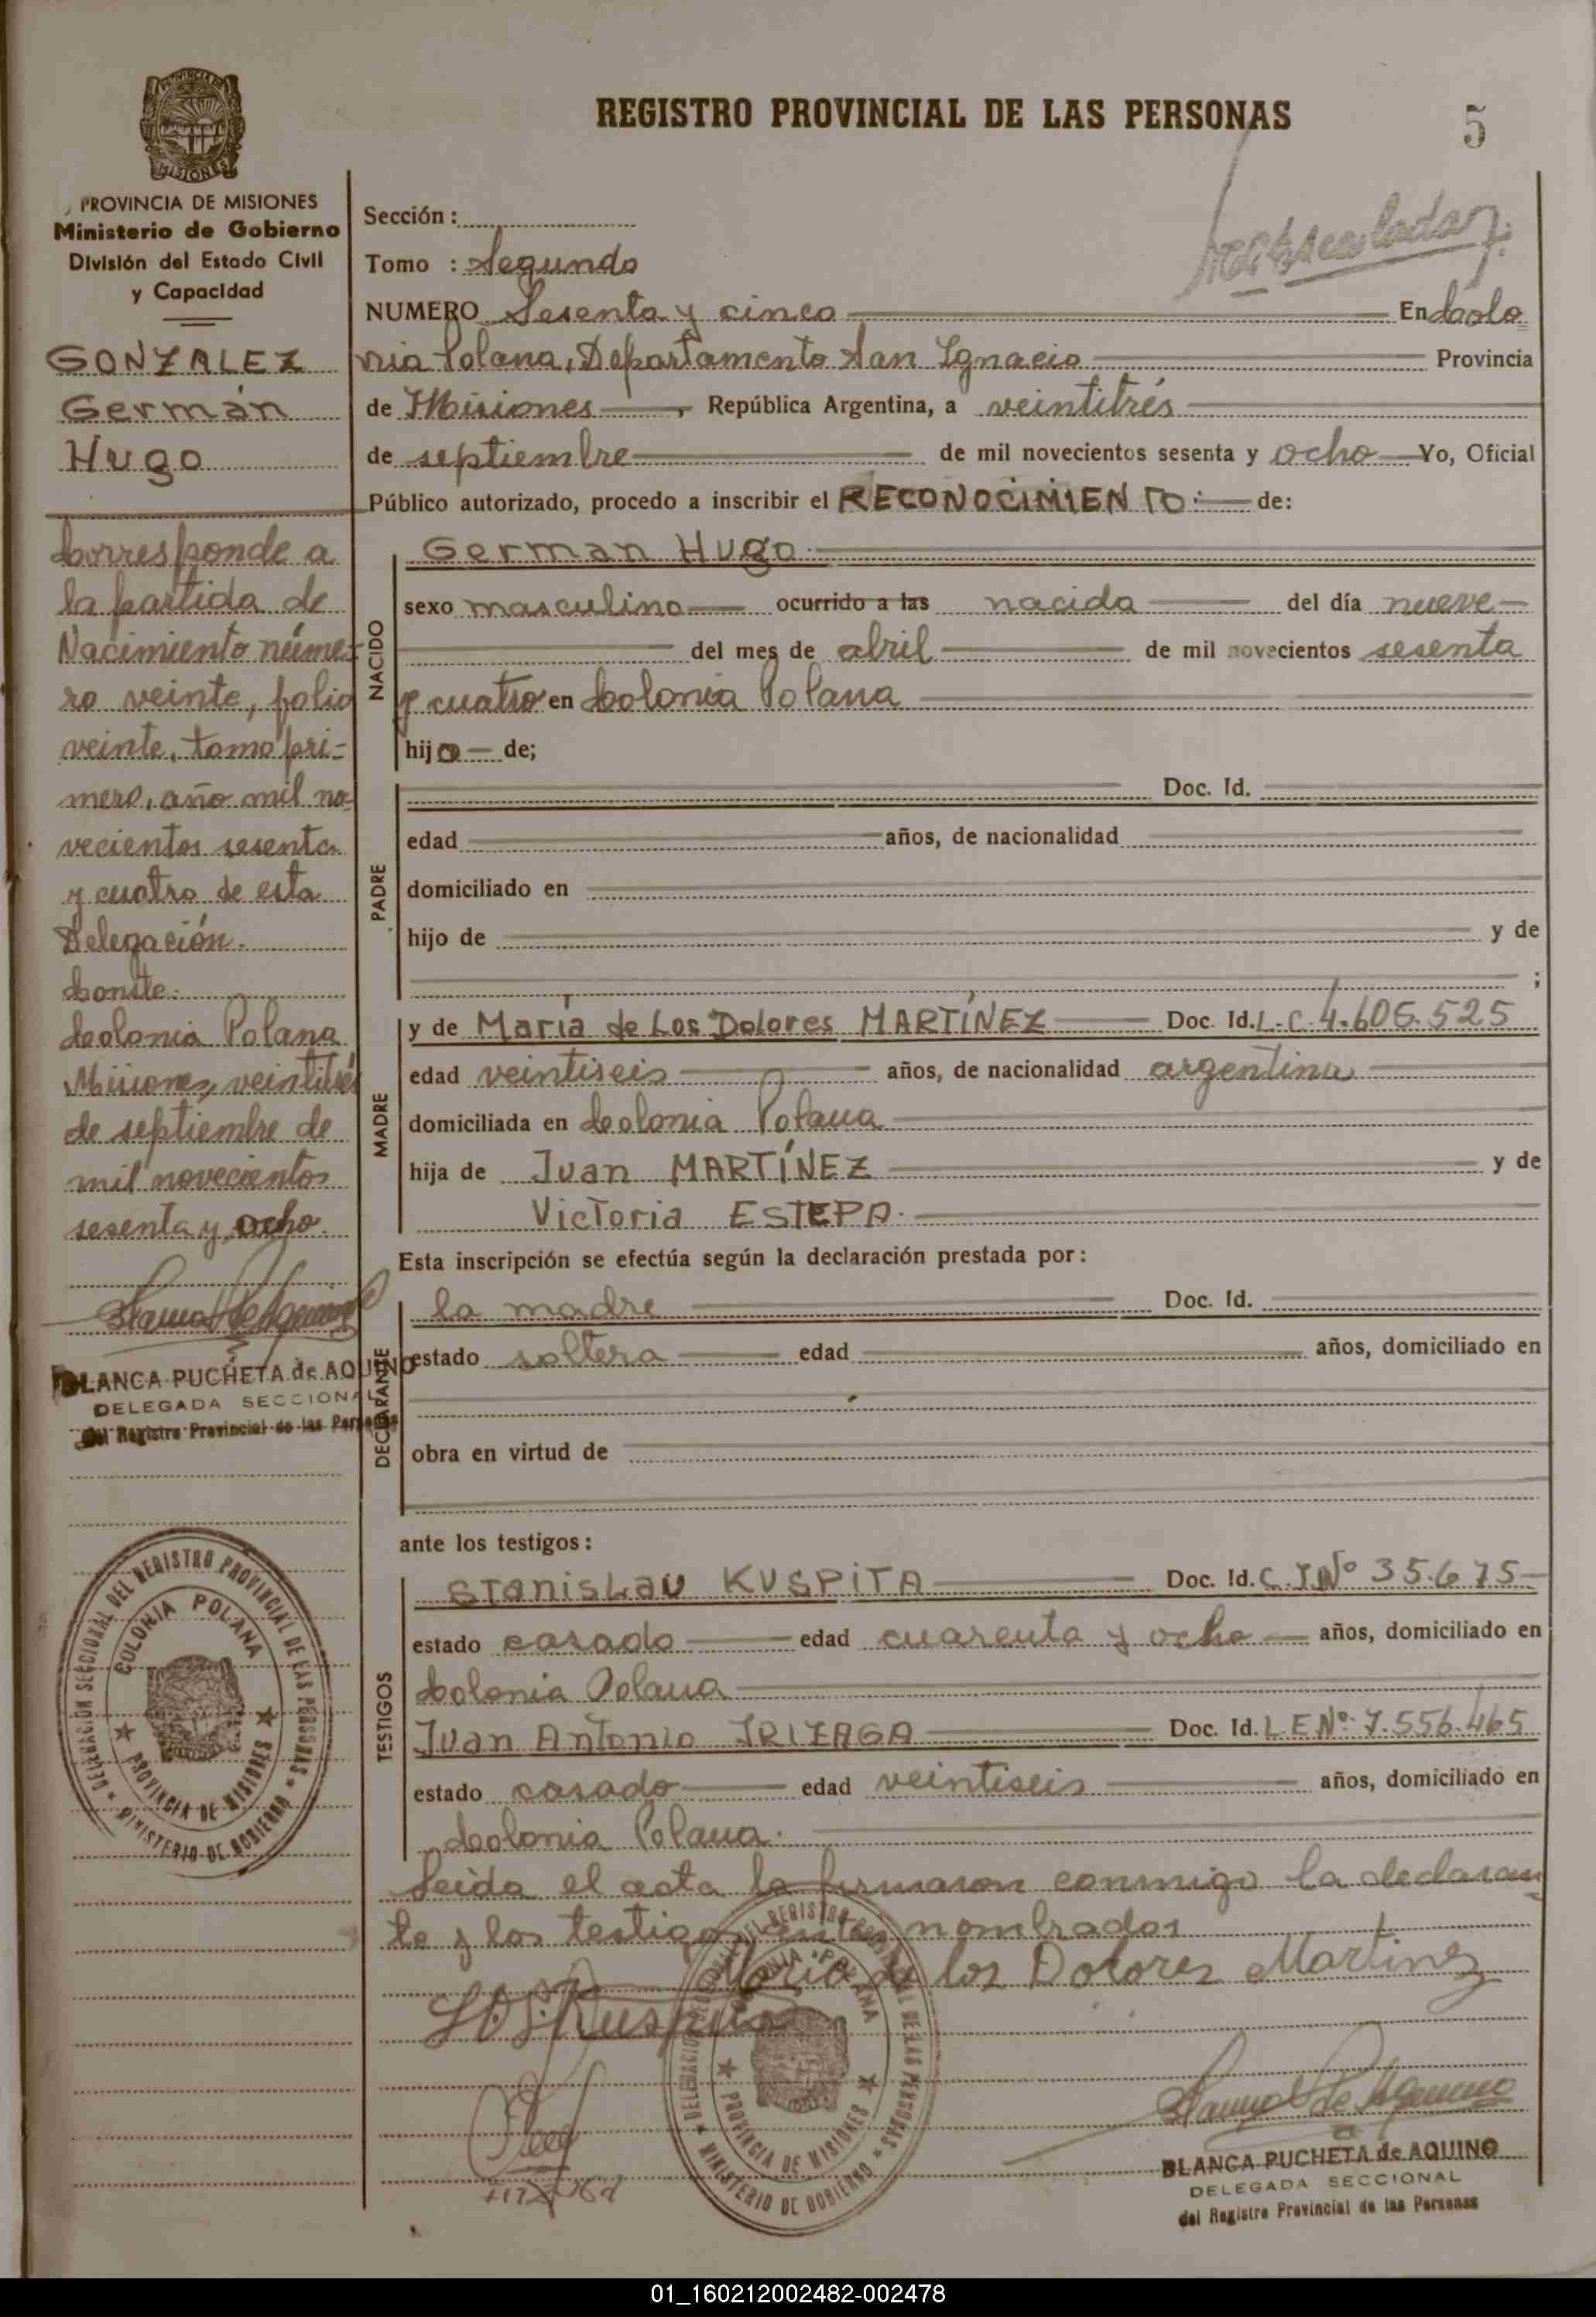 REGISTRO PROVINCIAL DE LAS PERSONAS
5
PROVINCIA DE MISIONES
Ministerio de Gobierno
División del Estado Civil
y Capacidad
GONZALEZ
Germán
Hugo
Corresponde a
la partida de
Nacimiento núme-
ro veinte, folio
veinte, tomo pri-
mero, año mil no-
vecientos sesenta
y cuatro de esta
Delegación.
Conste.
Colonia Polana
Misiones, veintitrés
de septiembre de
mil novecientos
sesenta y ocho.
BLANCA PUCHETA de AQUINO
DELEGADA SECCIONAL
del Registro Provincial de las Personas
DELEGACION SECCIONAL DEL REGISTRO PROVINCIAL DE LAS PERSONAS
MINISTERIO DE GOBIERNO
COLONIA POLANA
PROVINCIA DE MISIONES
Sección :
Tomo : Segundo
NUMERO Sesenta y cinco En Colo
nia Polana, Departamento San Ignacio Provincia
de Misiones, República Argentina, a veintitrés
de septiembre de mil novecientos sesenta y ocho Yo, Oficial
Público autorizado, procedo a inscribir el RECONOCIMIENTO: de:
NACIDO
German Hugo
sexo masculino ocurrido a las nacido del día nueve
del mes de abril de mil novecientos sesenta
y cuatro en Colonia Polana
hijo de;
PADRE
Doc. Id.
edad años, de nacionalidad
domiciliado en
hijo de y de
;
MADRE
y de María de Los Dolores MARTÍNEZ Doc. Id. L.C. 4.605.525
edad veintiseis años, de nacionalidad argentina
domiciliada en Colonia Polana
hija de Juan MARTÍNEZ y de
Victoria ESTEPA.
Esta inscripción se efectúa según la declaración prestada por:
DECLARANTE
la madre Doc. Id.
estado soltera edad años, domiciliado en
obra en virtud de
ante los testigos:
TESTIGOS
Stanislau KUSPITA Doc. Id. C.I.Nº 35.675
estado casado edad cuarenta y ocho años, domiciliado en
Colonia Polana
Juan Antonio IRIZAGA Doc. Id. L E Nº: 7.556.465
estado casado edad veintiseis años, domiciliado en
Colonia Polana.
Leida el acta la firmaron conmigo la declaran
te y los testigos antes nombrados
María de los Dolores Martinez
DELEGACION SECCIONAL DEL REGISTRO PROVINCIAL DE LAS PERSONAS
MINISTERIO DE GOBIERNO
COLONIA POLANA
PROVINCIA DE MISIONES
BLANCA PUCHETA de AQUINO
DELEGADA SECCIONAL
del Registro Provincial de las Personas
01_160212002482-002478